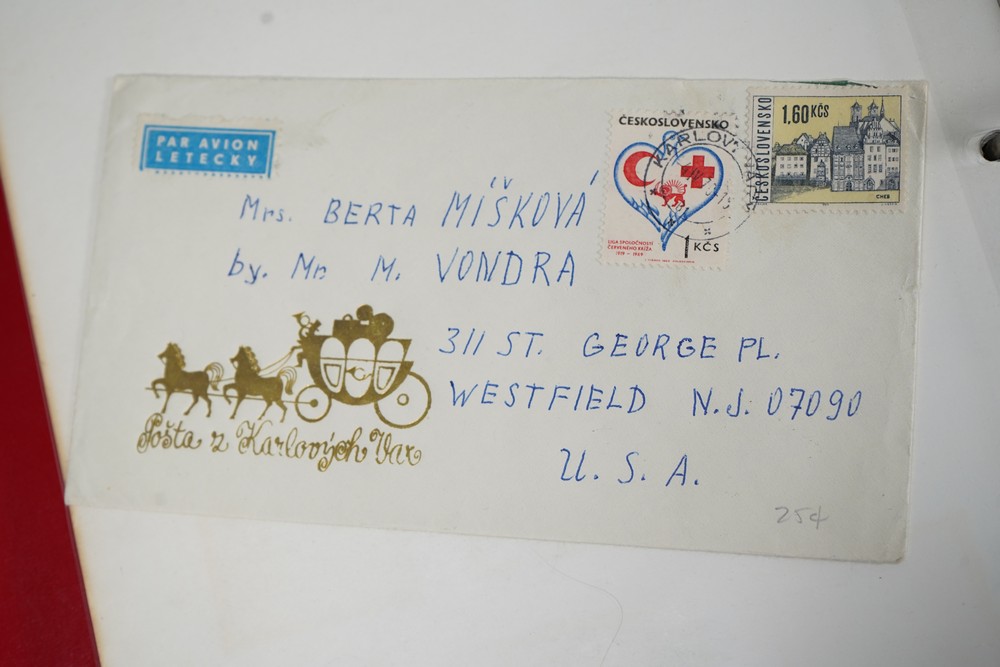 PAR AVION
LETECKY
ČESKOSLOVENSKO
LIGA SPOLOČNOSTÍ
ČERVENÉHO KRÍŽA
1919 - 1969
1 KČS
1,60 KČS
ČESKOSLOVENSKO
CHEB
KARLOVY VARY
Mrs. BERTA MÍŠKOVÁ
by. Mr M. VONDRA
311 ST. GEORGE PL.
WESTFIELD N.J. 07090
U. S. A.
Pošta z Karlových Var
254